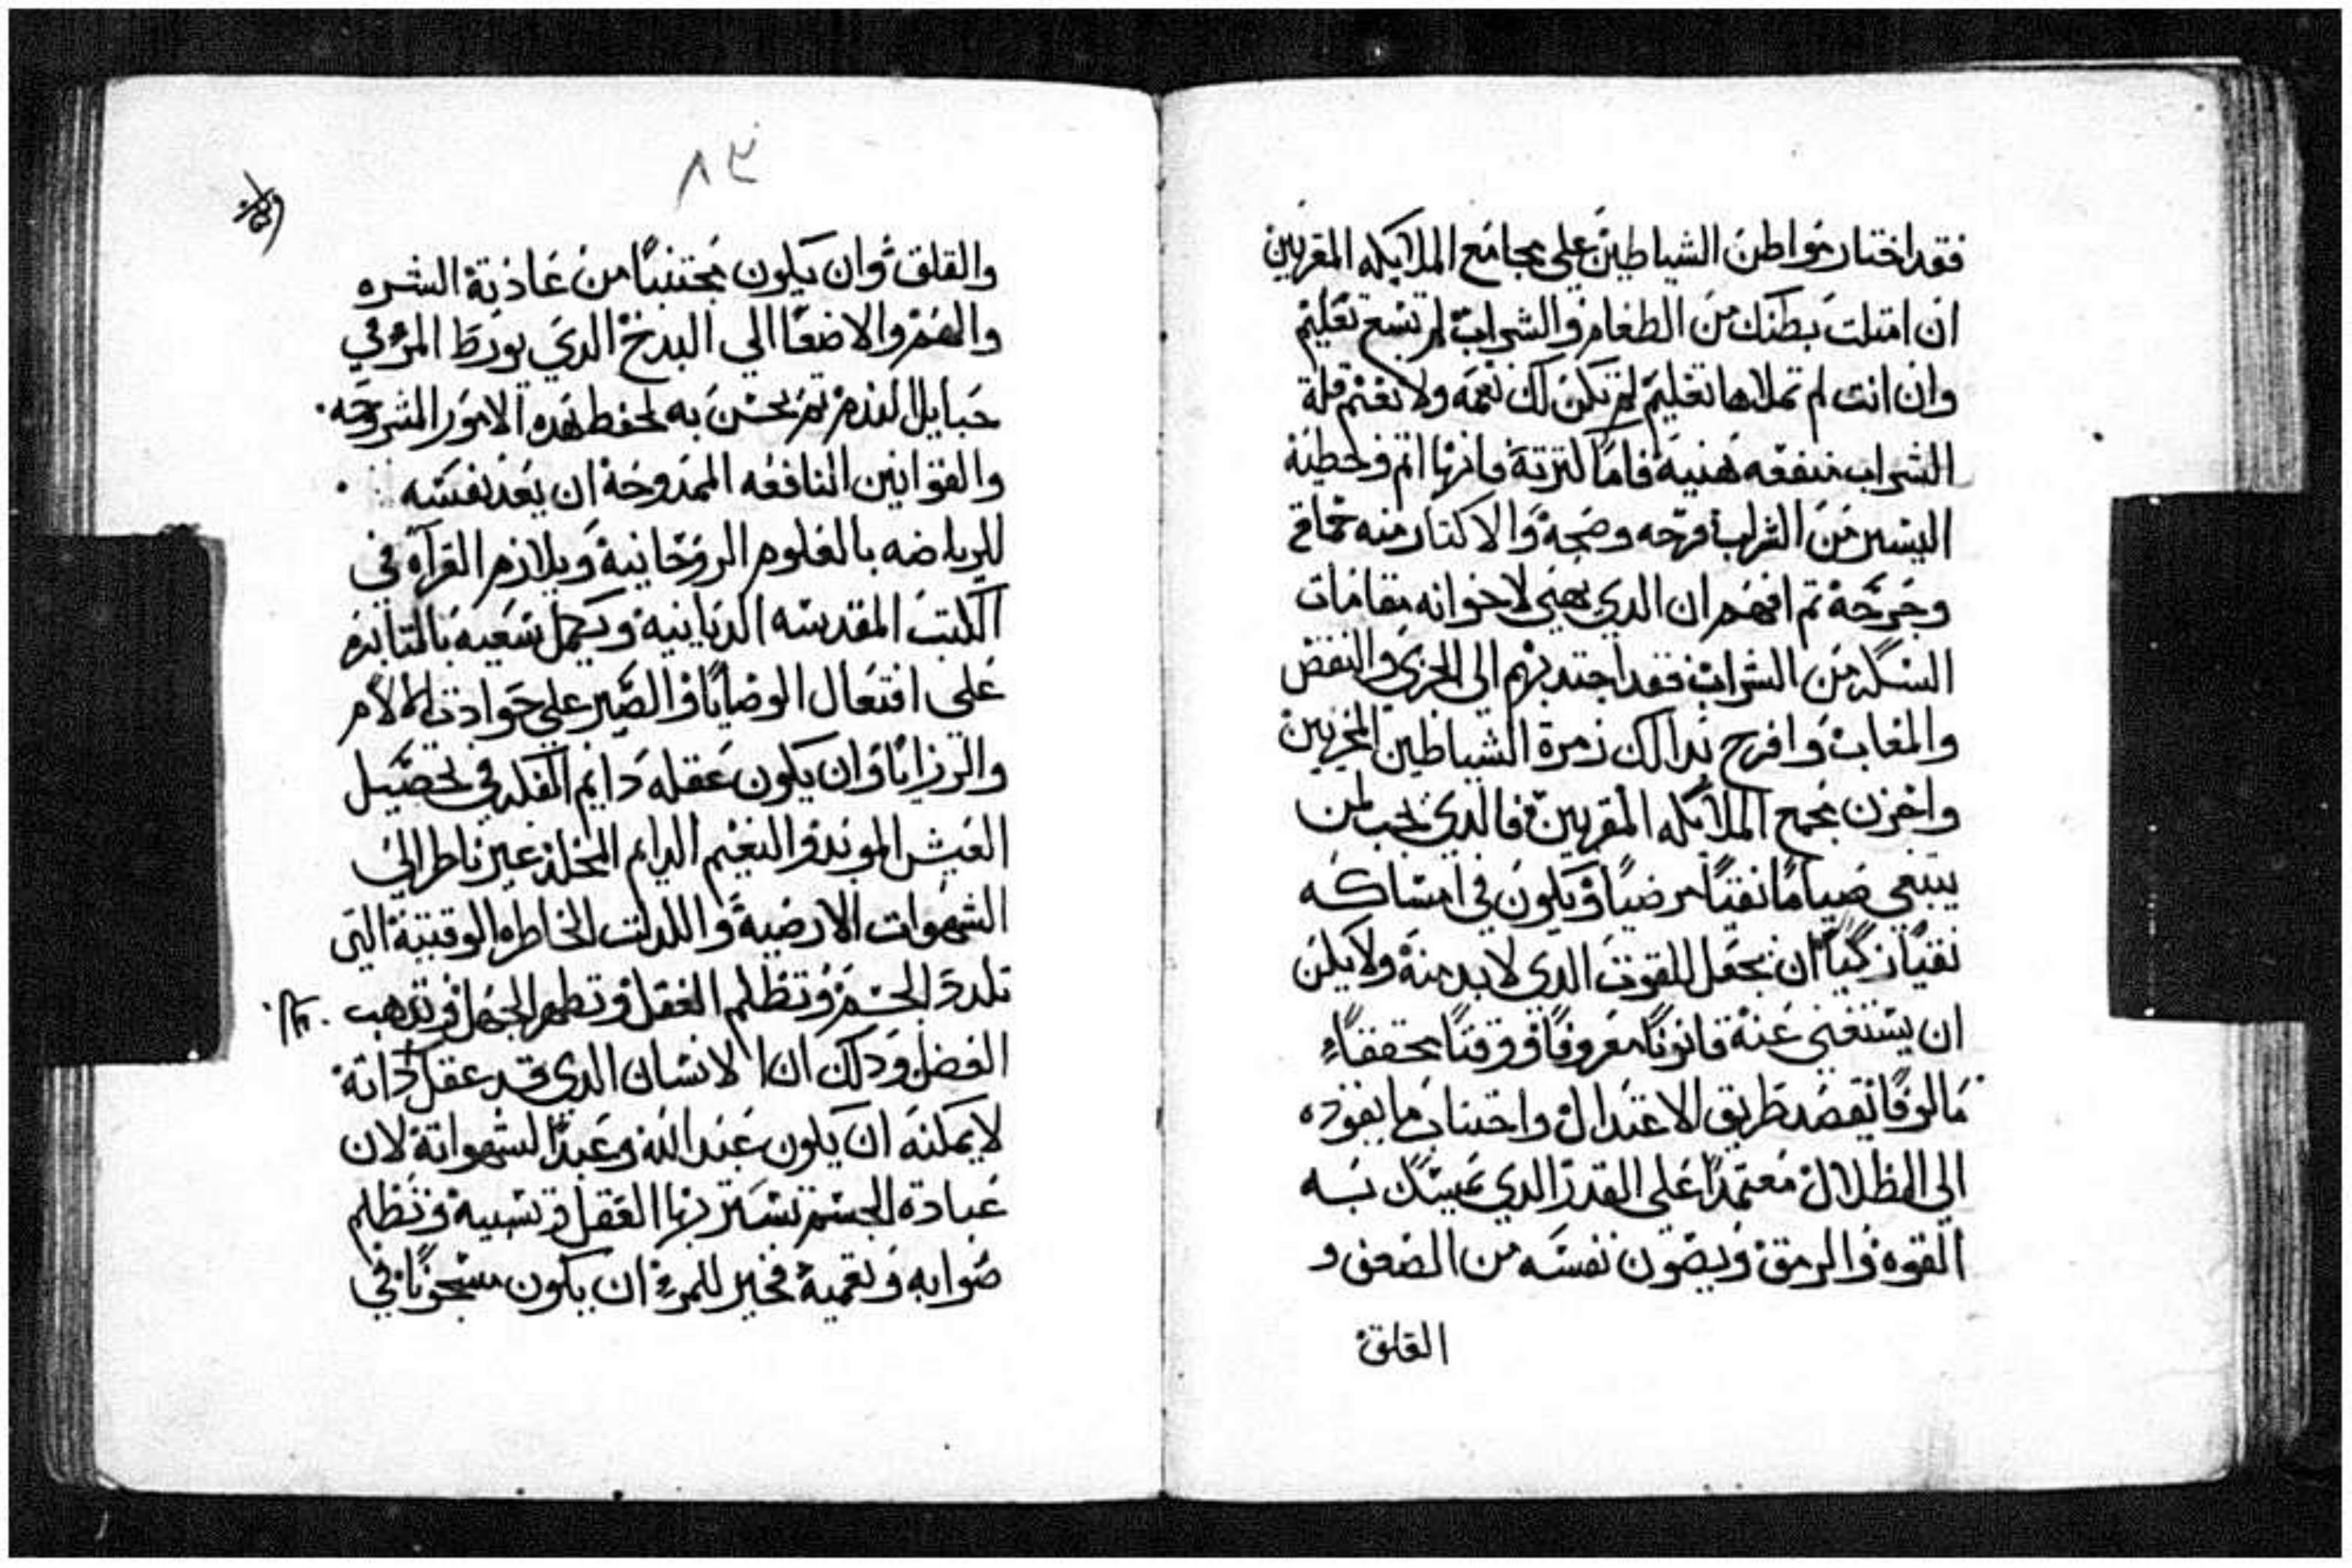 فقد اختار مواطن الشياطين علي مجامع الملايكه المقربين
ان امتلت بطنك من الطعام والشراب لم تسع تعليم
وان انت لم تملاها تعليم لم تكن لك نعمه ولا تغنم قلة
الشراب منفعه هنية فاما كترته فانها اتم وخطية
اليسير من الشراب فرحه وصحة والاكتار منه حماقه
وجرحة تم افهم ان الدي يهيي لاخوانه مقامات
السكر من الشراب فقد اجتدبهم الى الخزي والنقض
والمعاب وافرح بدالك زمرة الشياطين المخزيين
واحزن مجمع الملايكه المقربين فالدي يجب لمن
يبتغي صياما نقيا مرضيا ويكون في امساكه
نقيا زكيا ان يجعل للقوت الدي لا بد منه ولا يمكن
ان يستغني عنه قانونا معروفا ووقتا محققا
مالوفا يقصد طريق الاعتدال واجتناب ما يقوده
الى الظلال معتمدا على القدر الدي يمسك به
القوه والرمق ويصون نفسه من الضعف و
القلق
٨٣
والقلق وان يكون مجتنبا من عادية الشره
والنهم والاصغا الي البدخ الدي يورط المرء في
حبايل الندم تم يحسن به لحفظ هده الامور المشروحه
والقوانين النافعه الممدوحة ان يعد نفسه
للرياضه بالعلوم الروحانية ويلازم القرآه في
الكتب المقدسه الربانية ويكمل سعيه بالمتابره
على افتعال الوصايا والصبر علي حوادت الالام
والرزايا وان يكون عقله دايم الفكر في تحصيل
العيش الموبد والنعيم الدايم المخلد غير ناظر الي
الشهوات الارضية واللدات الخاطره الوقتية التي
تلدد الجسم وتظلم العقل وتظهر الجهل وتدهب
الفضل ودلك ان الانسان الدي قد عقل داته
لا يمكنه ان يكون عبد الله وعبدا لشهواته لان
عبادة الجسم تستتر بها العقل وتسبيه وتظلم
صوابه وتعميه فخير للمرء ان يكون مسجونا في